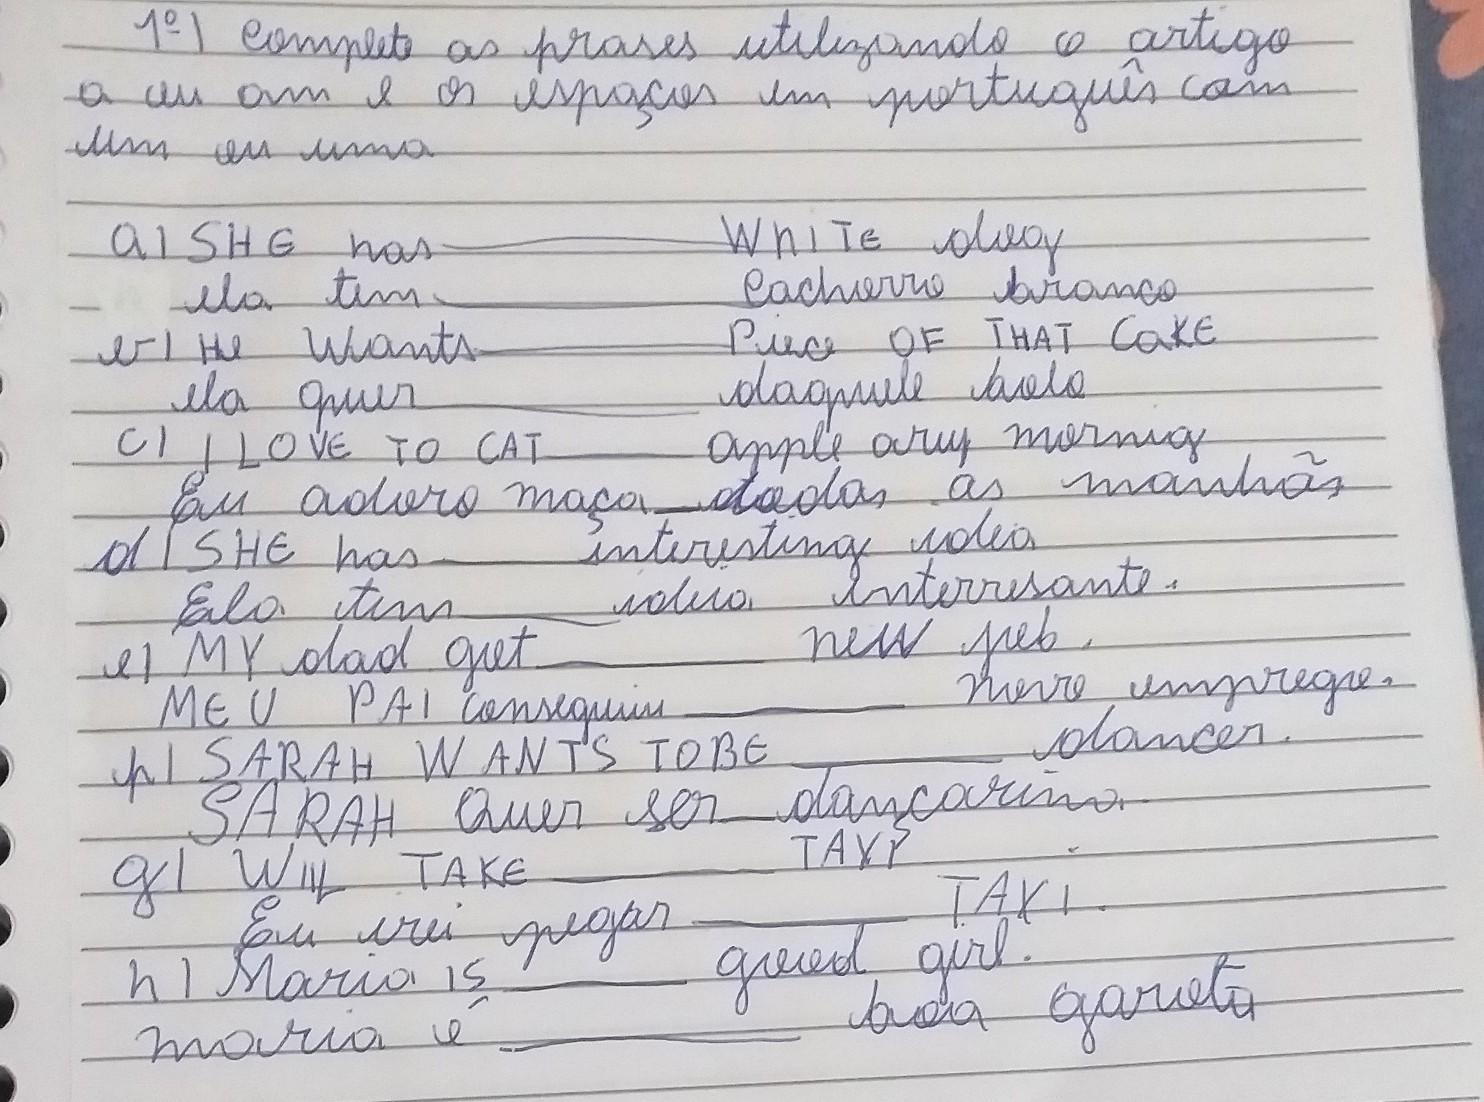 1º) Complete as frases utilizando o artigo
a ou an e os espaços em português com
um ou uma
a) SHE has ______ WhITE dog
ela tem ______ cachorro branco
b) He Wants ______ Piece OF THAT CAKE
ela quer ______ daquele bolo
c) I LOVE TO CAT ______ apple morning
Eu adoro maça ___ todas as manhãs
d) SHE has ______ interesting idea
Ela tem ______ ideia interresante.
e) MY dad got ______ new job.
MEU PAI conseguiu ______ novo emprego.
f) SARAH WANTS TO BE ______ dancer.
SARAH Quer ser dançarina.
g) WILL TAKE ______ TAXI
Eu irei pegar ______ TAXI.
h) Maria is ______ good girl.
maria é ______ boa garota